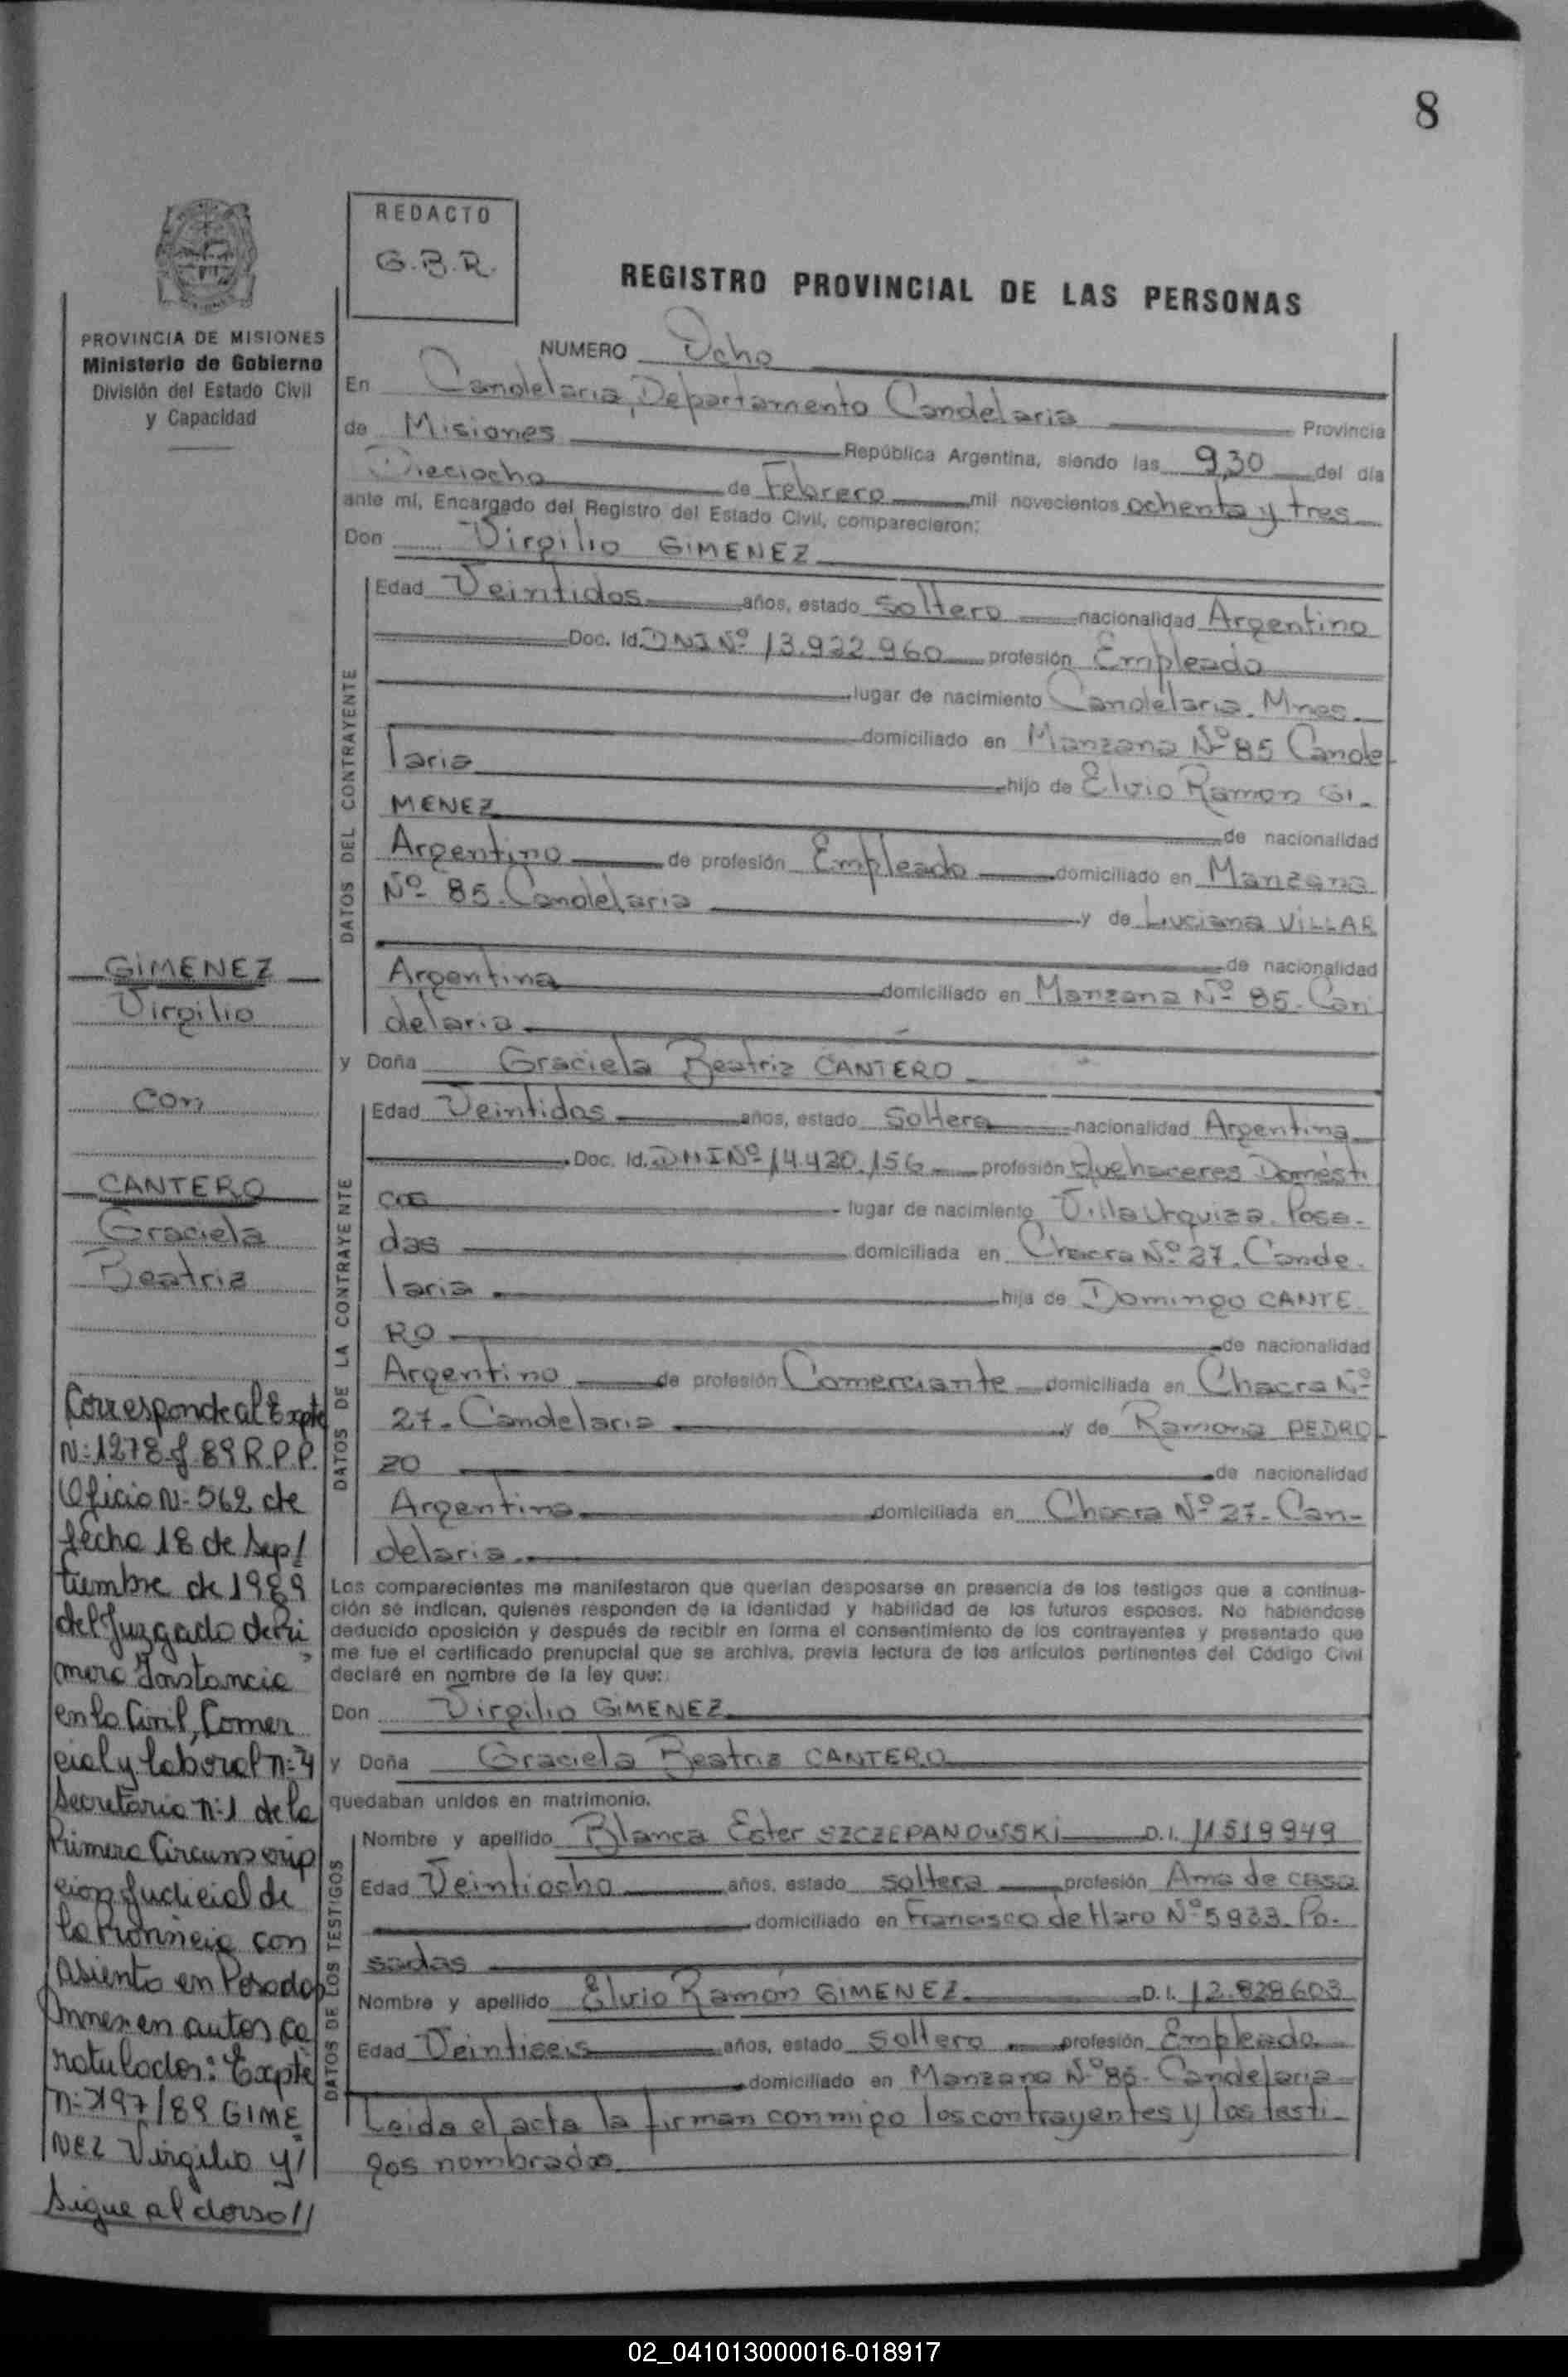 8
REDACTO
G.B.R.
REGISTRO PROVINCIAL DE LAS PERSONAS
PROVINCIA DE MISIONES
Ministerio de Gobierno
División del Estado Civil
y Capacidad
NUMERO Ocho
En Candelaria, Departamento Candelaria Provincia
de Misiones República Argentina, siendo las 9,30 del día
Dieciocho de Febrero mil novecientos ochenta y tres
ante mí, Encargado del Registro del Estado Civil, comparecieron:
Don Virgilio GIMENEZ
DATOS DEL CONTRAYENTE
Edad Veintidos años, estado Soltero nacionalidad Argentino
Doc. Id. DNI Nº 13.922.960 profesión Empleado
lugar de nacimiento Candelaria. Mnes.
domiciliado en Manzana Nº 85 Cande
laria hijo de Elvio Ramon GI-
MENEZ de nacionalidad
Argentino de profesión Empleado domiciliado en Manzana
Nº 85. Candelaria y de Luciana VILLAR
de nacionalidad
Argentina domiciliado en Manzana Nº 85. Can
delaria
y Doña Graciela Beatriz CANTERO
DATOS DE LA CONTRAYENTE
Edad Veintidos años, estado Soltera nacionalidad Argentina
Doc. Id. DNI Nº 14.420.156 profesión Quehaceres Domésti
cos lugar de nacimiento Villa Urquiza. Posa-
das domiciliada en Chacra Nº 27. Cande.
laria hija de Domingo CANTE
RO de nacionalidad
Argentino de profesión Comerciante domiciliada en Chacra Nº
27. Candelaria y de Ramona PEDRO
ZO de nacionalidad
Argentina domiciliada en Chacra Nº 27- Can-
delaria.
Los comparecientes me manifestaron que querían desposarse en presencia de los testigos que a continua-
ción se indican, quienes responden de la identidad y habilidad de los futuros esposos. No habiéndose
deducido oposición y después de recibir en forma el consentimiento de los contrayentes y presentado que
me fue el certificado prenupcial que se archiva, previa lectura de los artículos pertinentes del Código Civil
declaré en nombre de la ley que:
Don Virgilio GIMENEZ
y Doña Graciela Beatriz CANTERO
quedaban unidos en matrimonio.
DATOS DE LOS TESTIGOS
Nombre y apellido Blanca Ester SZCZEPANOWSKI D.I. 11519949
Edad Veintiocho años, estado soltera profesión Ama de casa
domiciliado en Francisco de Haro Nº 5933. Po-
sadas
Nombre y apellido Elvio Ramón GIMENEZ D.I. 12.828603
Edad Veintiseis años, estado soltero profesión Empleado
domiciliado en Manzana Nº 85- Candelaria
Leida el acta la firman conmigo los contrayentes y los testi-
gos nombrados
GIMENEZ
Virgilio
con
CANTERO
Graciela
Beatriz
Corresponde al Expte
Nº 1278-J-89 R.P.P.
Oficio Nº 562 de
fecha 18 de Sep/
tiembre de 1989
del Juzgado de Pri
mera Instancia
en lo Civil, Comer
cial y Laboral nº 4
Secretaria nº 1 de la
Primera Circunscrip
cion Judicial de
la Provincia con
asiento en Posadas
Mnes. en autos ca
ratulados: Expte
nº 197/89 GIME
NEZ Virgilio y/
Sigue al dorso//
02_041013000016-018917